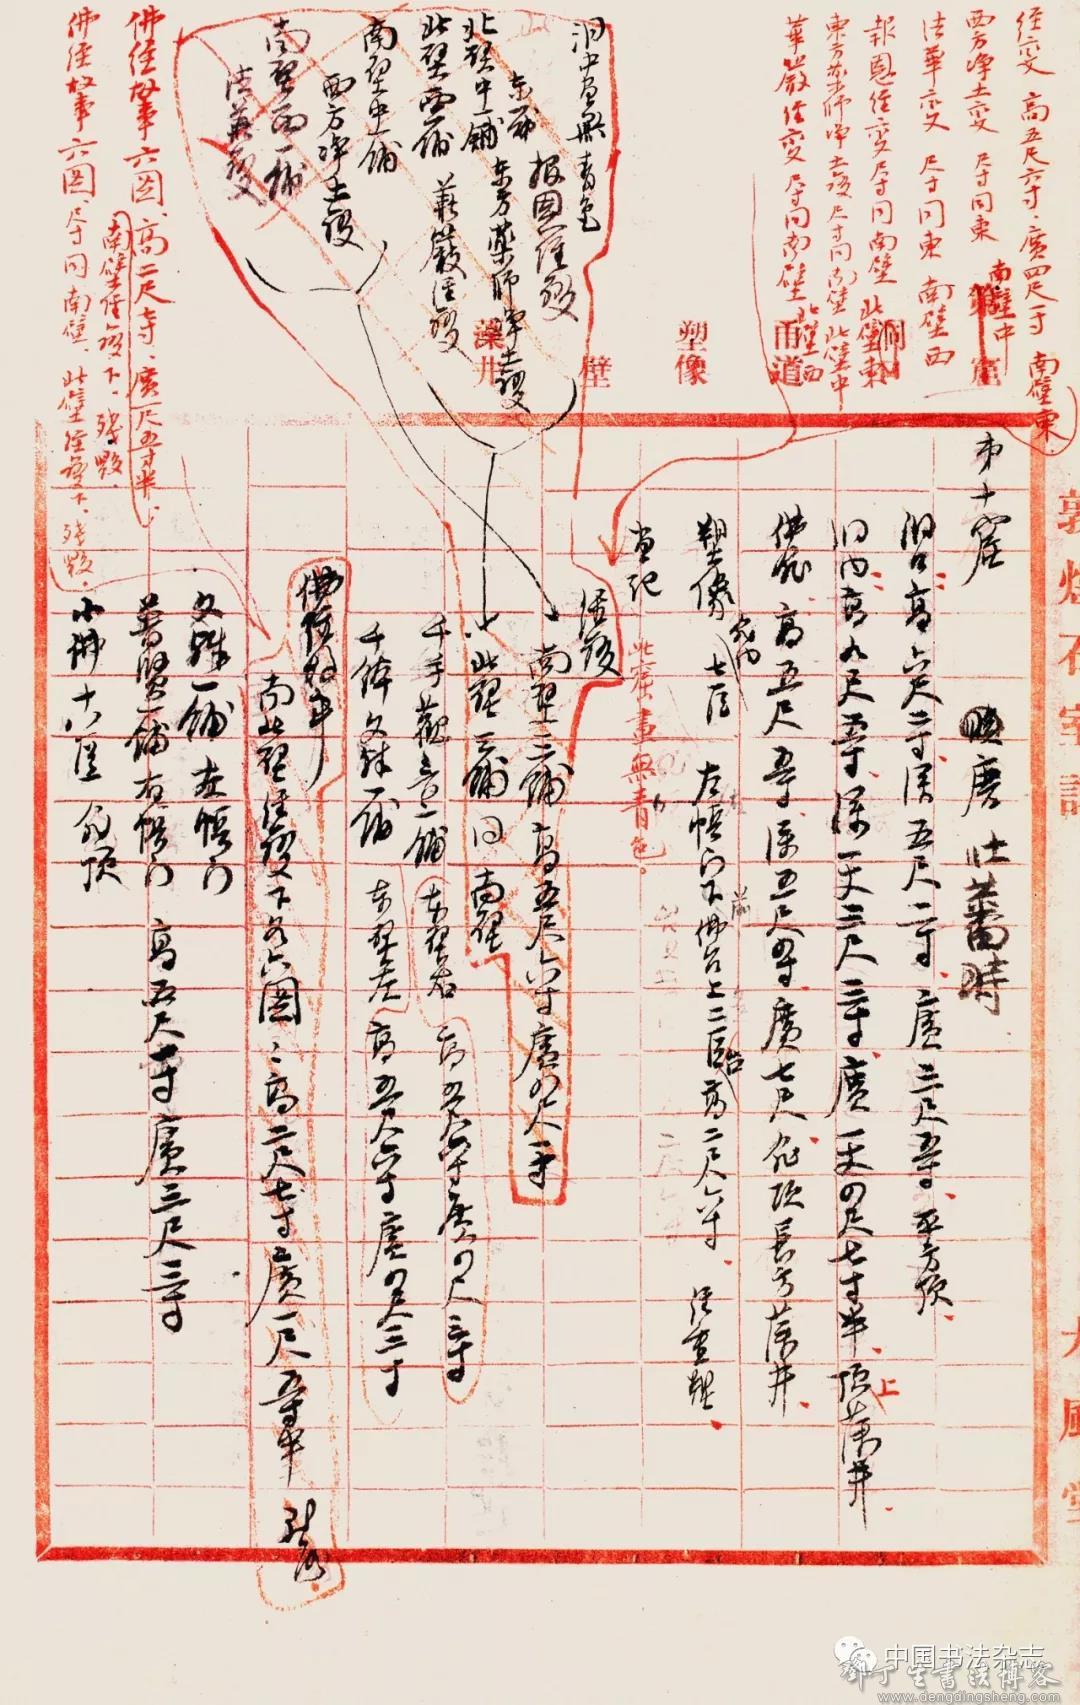 經變 高五尺六寸廣四尺一寸 南壁東
西方淨土變 尺寸同東 南壁中
法華變 尺寸同東 南壁西
報恩經變 尺寸同南壁 北壁東
東方藥師淨土變 尺寸同南壁 北壁中
華嚴經變 尺寸同南壁 北壁西
窟
洞口
甬道
塑像
壁
藻井
洞中畫無青色
東一鋪 報恩經變
北壁中一鋪 東方藥師淨土變
北壁西一鋪 華嚴經變
南壁中一鋪
西方淨土變
南壁西一鋪
法華變
佛經故事六圖、高二尺七寸、廣一尺五寸半
南壁經變下、殘毀
佛經故事六圖、尺寸同南壁、北壁經變下、殘毀
敦煌石室記
大風堂
第十窟 晚唐 吐蕃時
洞口高六尺二寸深五尺二寸、廣三尺五寸、平方頂
洞內高九尺五寸深一丈三尺三寸廣一丈四尺七寸半頂上藻井
佛龕 高五尺五寸深五尺四寸廣七尺龕頂長方藻井
塑像 龕內七尊 左帳門下佛台上二臣高二尺六寸 經重塑
畫記 此窟畫無青色
經變
南壁三鋪 高五尺六寸廣四尺一寸
北壁三鋪 同南壁
千手觀音一鋪 東壁右 高五尺六寸廣四尺三寸
千鉢文殊一鋪 東壁左 高五尺六寸廣四尺三寸
佛經故事
南北壁經變下各六圖高二尺七寸廣一尺五寸半 殘毀
文殊一鋪 左帳門
普賢一鋪右帳門 高五尺一寸廣三尺三寸
小佛十八尊 龕頂
中国书法杂志
邓丁生书法博客
www.dengdingsheng.com